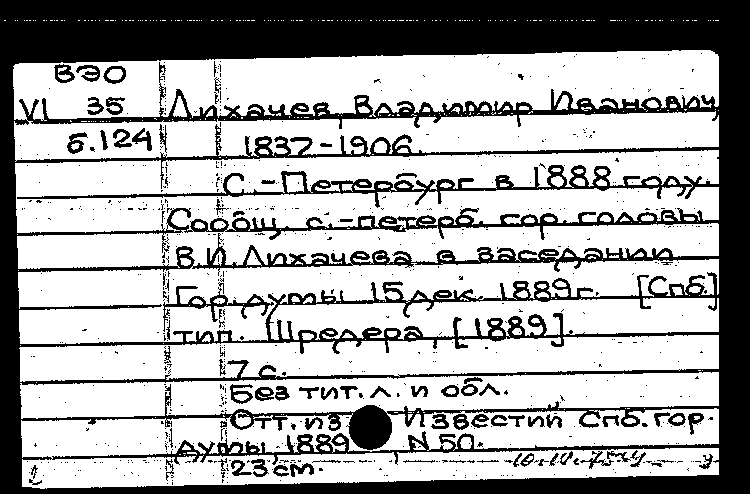 ВЭО
VI 35
Б.124
Лихачев, Владимир Иванович,
1837-1906.
С.-Петербург в 1888 году.
Сообщ. с.-петерб. гор. головы
В.И. Лихачева в заседании
Гор. думы 15 дек. 1889г. [Спб.]
тип. Шредера, [1889].
7 с.
Без тит. л. и обл.
Отт. из Известий Спб. гор.
думы, 1889, N 50.
23 см.